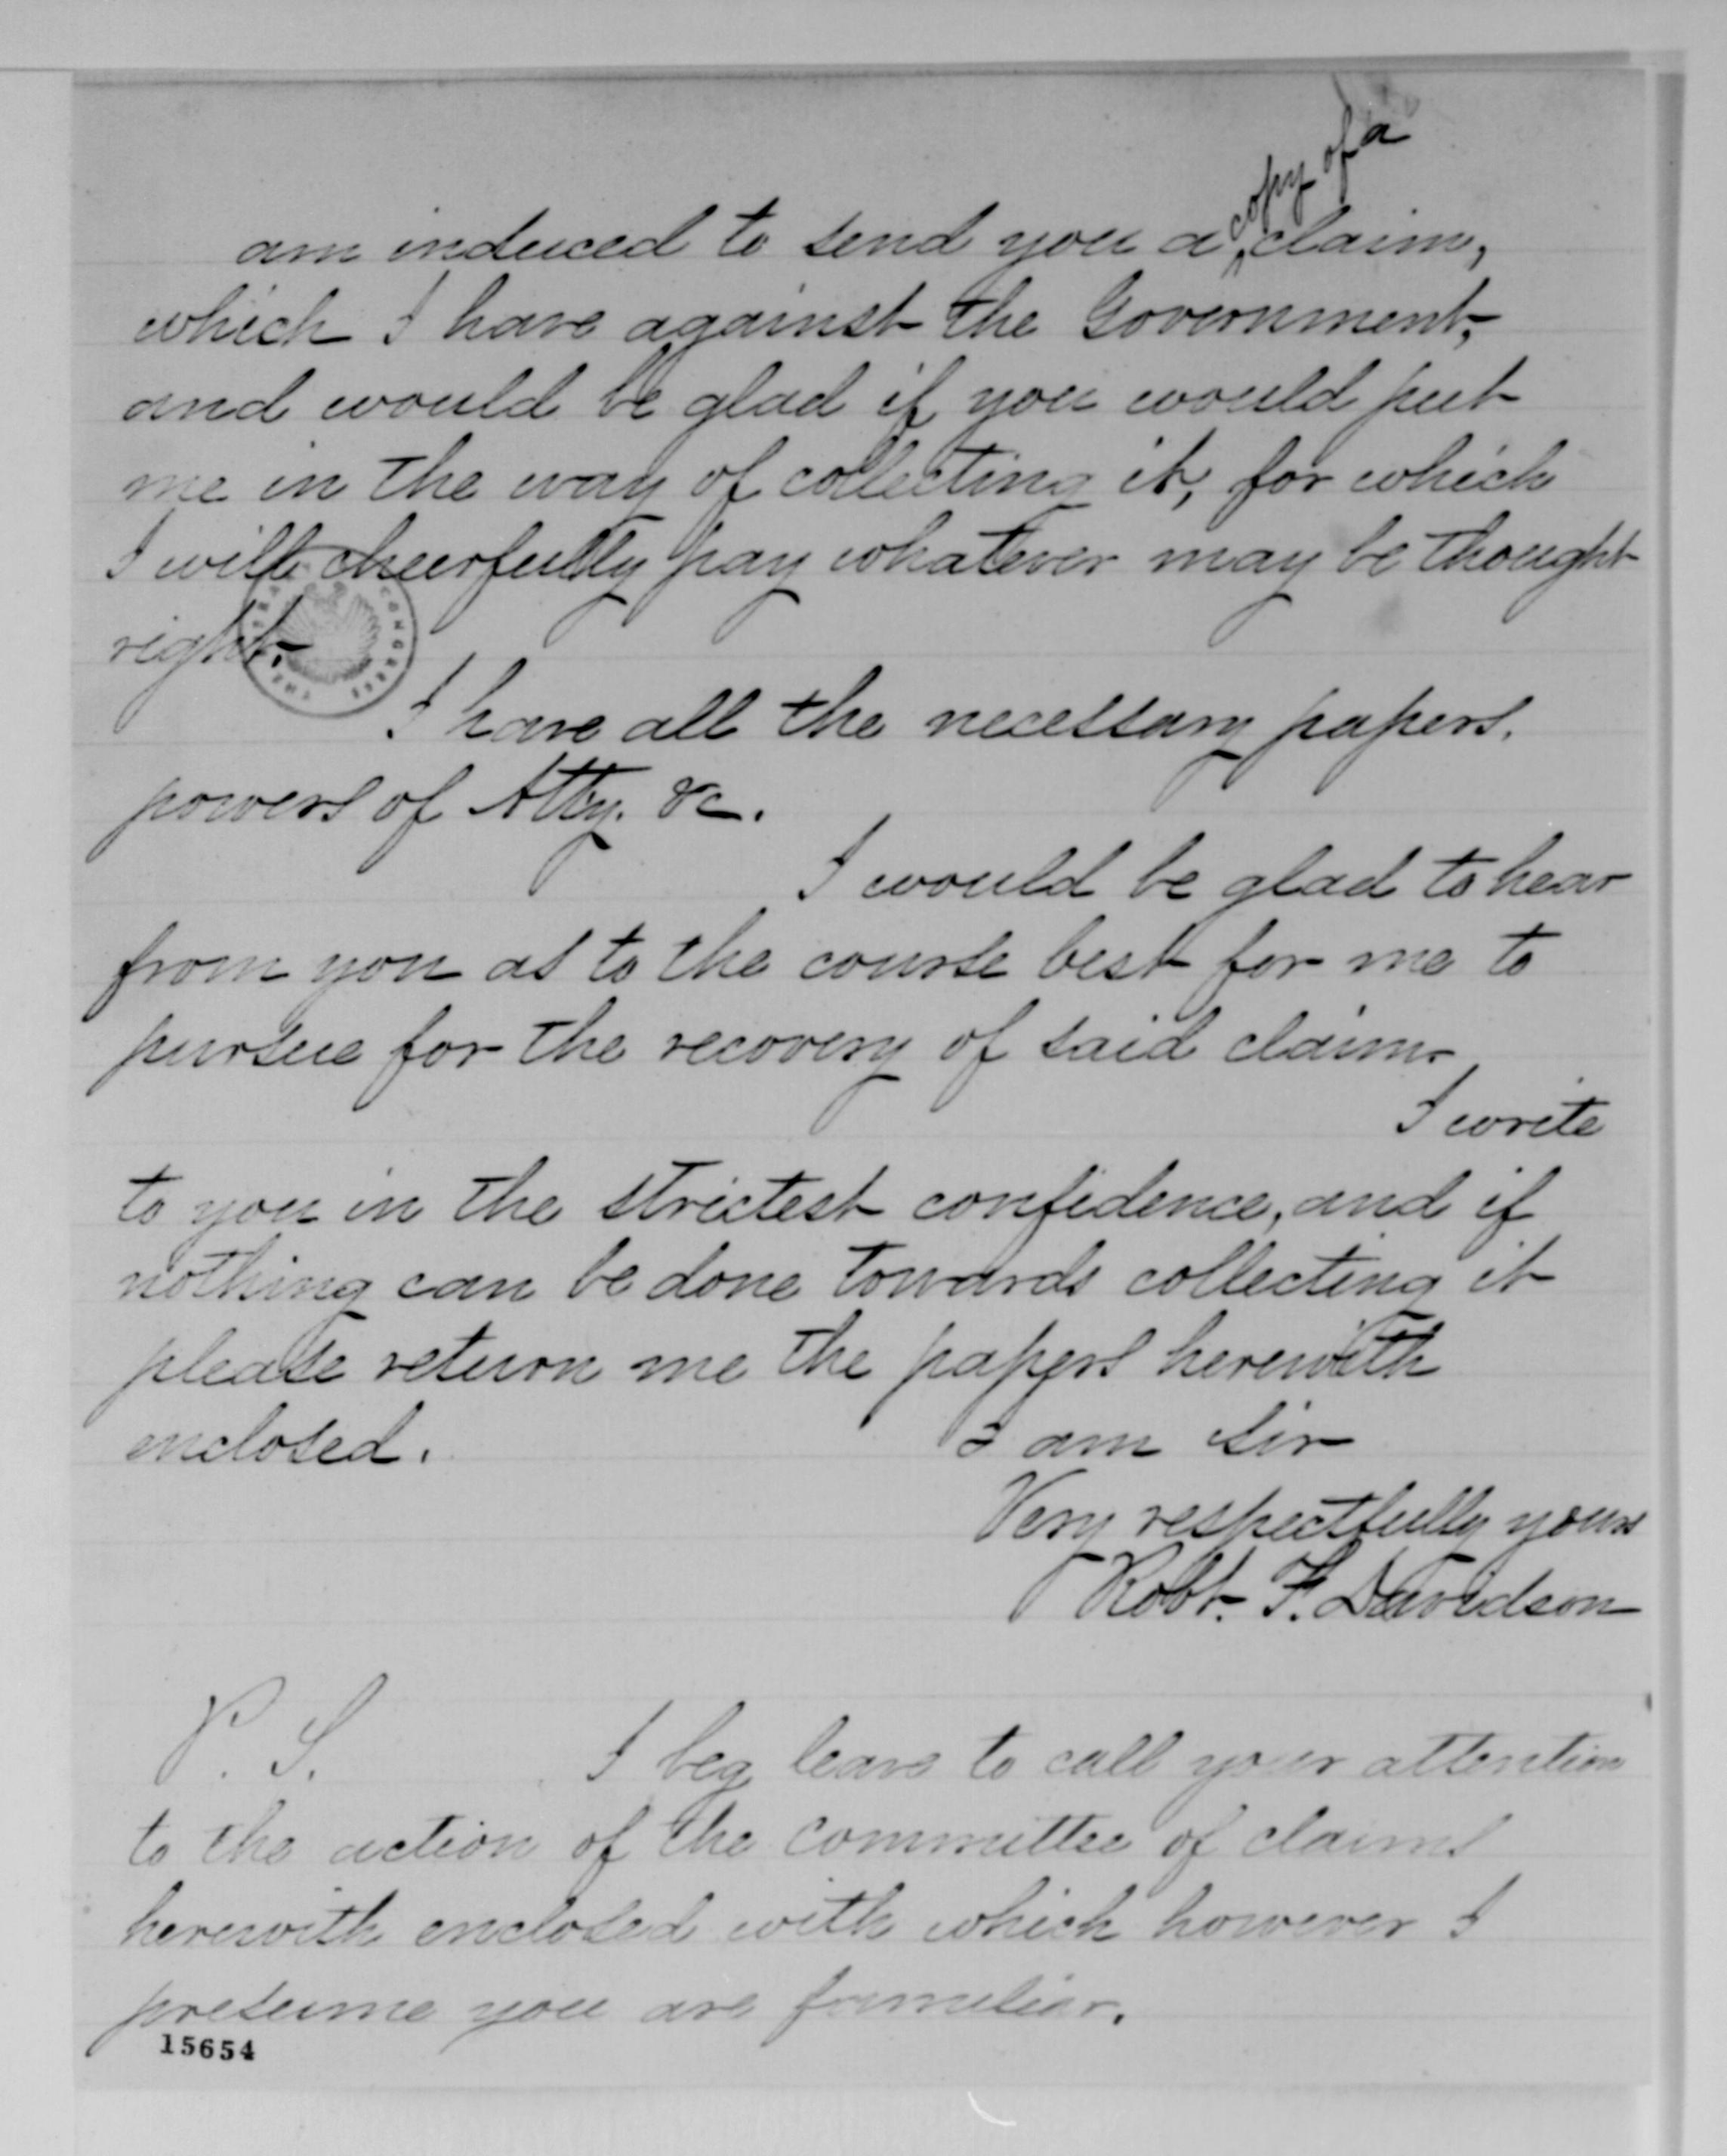 am induced to send you a ^copy of a claim,
which I have against the Government,
and would be glad if you would put
me in the way of collecting it, for which
I will cheerfully pay whatever may be thought
right.
I have all the necessary papers,
powers of Atty. &c.
I would be glad to hear
from you as to the course best for me to
pursue for the recovery of said claim.
I write
to you in the strictest confidence, and if
nothing can be done towards collecting it
please return me the papers herewith
enclosed.
I am Sir
Very respectfully yours
Robt. F. Davidson
P. S. I beg leave to call your attention
to the action of the committee of claims
herewith enclosed with which however I
presume you are familiar.
15654